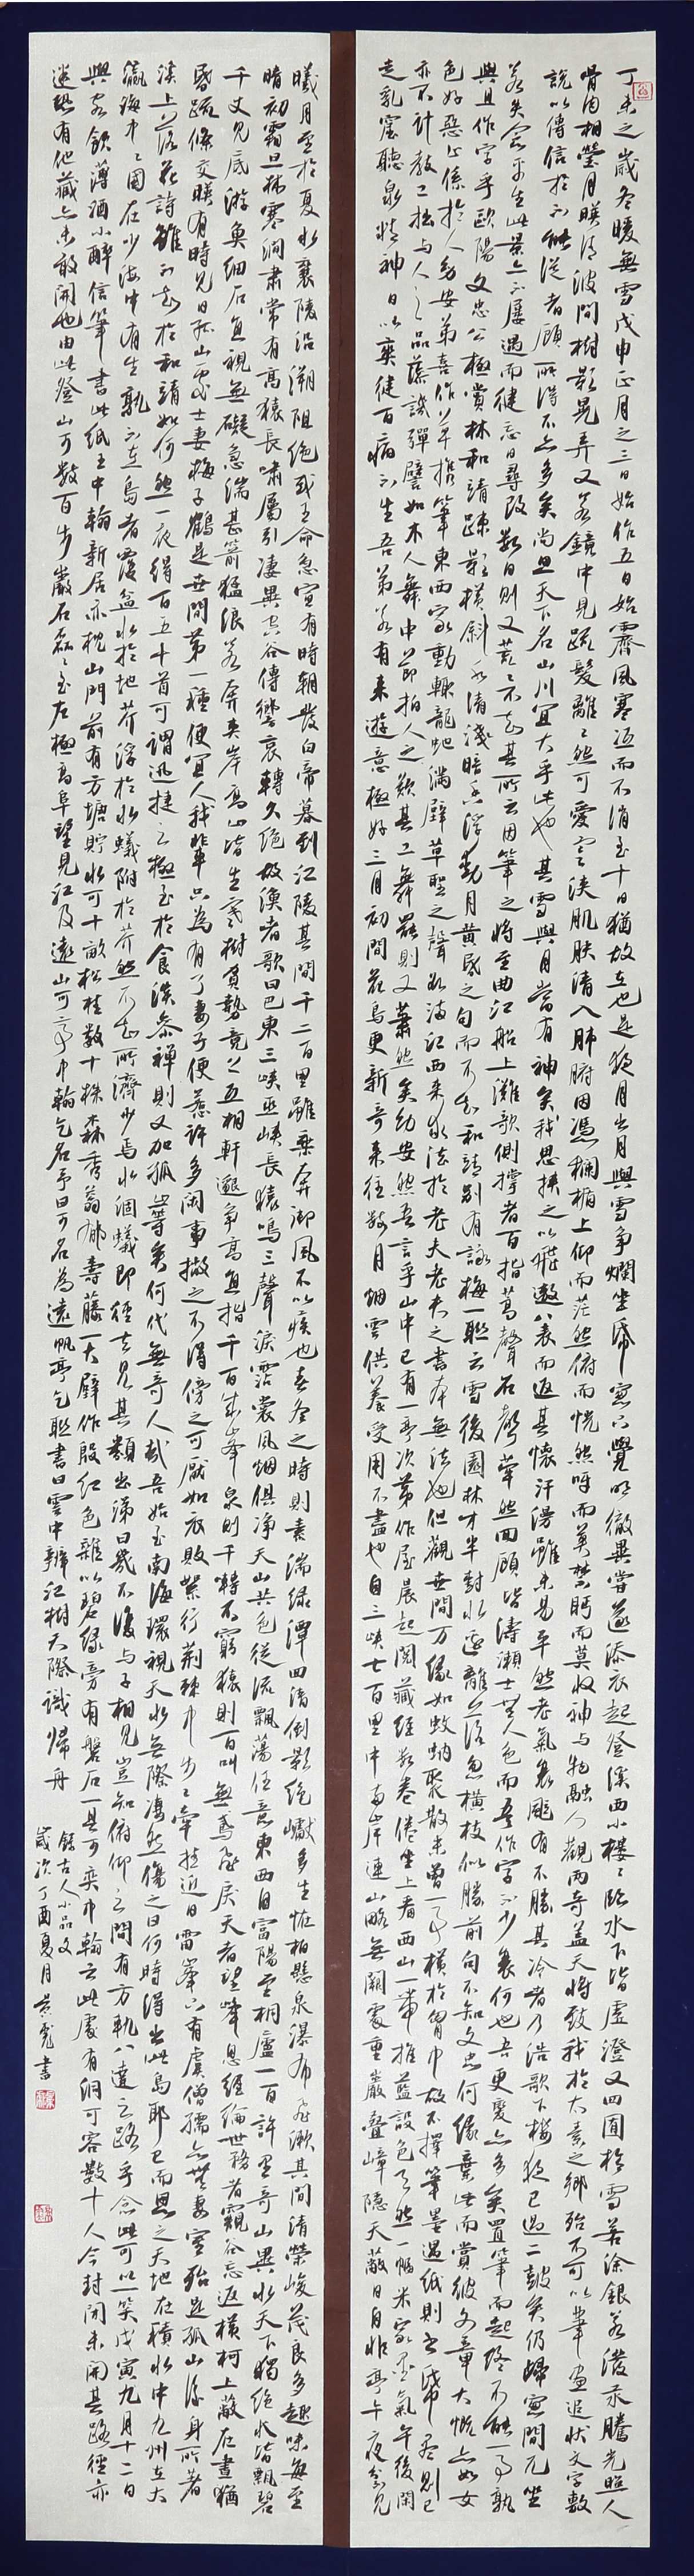 丁未之歲冬暖無雪戊申正月之三日始作五日始霽風寒沍而不消至十日猶故在也是夜月出月與雪爭爛坐紙窓只覺明徹異常遂添衣起登溪西小樓樓臨水下皆虛澄又四囿於雪若塗銀若潑汞騰光照人
骨肉相瑩月映清波間樹影晃弄又若鏡中見疏髮離離然可愛寒浹肌膚清入肺腑因憑欄楯上仰而茫然俯而恍然呼而莫禁眄而莫收神与物融人觀兩奇蓋天將致我於太素之鄉殆不可以筆畫追狀文字敷
說以傳信於不能從者顧所得不亦多矣尚思天下名山川宜大乎此也其雪與月當有神矣我思挾之以飛遨八表而返其懷汗漫雖未易平然老氣衰颯有不勝其冷者乃浩歌下樓夜已過二鼓矣仍歸窓間兀坐
若失念平生此景亦不屢遇而健忘日尋改數日則又荒荒不知其所云因筆之將至曲江船上灘欹側撐者百指篙聲石聲犖然四顧皆濤瀨士無人色而吾作字不少衰何也吾更變亦多矣置筆而起終不能一事孰
與且作字乎歐陽文忠公極賞林和靖疏影橫斜水清淺暗香浮動月黃昏之句而不知和靖別有詠梅一聯云雪後園林才半樹水邊籬落忽橫枝似勝前句不知文忠何緣棄此而賞彼文章大概亦如女
色好惡止係於人幼安弟喜作草攜筆東西家動輒龍蛇滿壁草聖之聲欲滿江西來求法於老夫老夫之書本無法也但觀世間万緣如蚊蚋聚散未嘗一事橫於胸中故不擇筆墨遇紙則書紙盡則已
亦不計較工拙与人之品藻譏彈譬如木人舞中節拍人之歎其工舞罷則又蕭然矣幼安然吾言乎山中已有一亭次第作屋晨起閱藏經數卷倦坐上看西山一帶堆藍設色天然一幅米家墨氣午後閑
走乳窟聽泉精神日以爽健百病不生吾弟若有來遊意極好三月初間花鳥更新奇來往數月烟雲供養受用不盡也自三峽七百里中兩岸連山略無闕處重巖疊嶂隱天蔽日自非亭午夜分不見
曦月至於夏水襄陵沿溯阻絕或王命急宣有時朝發白帝暮到江陵其間千二百里雖乘奔御風不以疾也春冬之時則素湍綠潭回清倒影絕巘多生怪柏懸泉瀑布飛漱其間清榮峻茂良多趣味每至
晴初霜旦林寒澗肅常有高猿長嘯屬引淒異空谷傳響哀轉久絕故漁者歌曰巴東三峽巫峽長猿鳴三聲淚霑裳風烟俱淨天山共色從流飄蕩任意東西自富陽至桐廬一百許里奇山異水天下獨絕水皆飄碧
千丈見底游魚細石直視無礙急湍甚箭猛浪若奔夾岸高山皆生寒樹負勢競上互相軒邈爭高直指千百成峯泉則千轉不窮猿則百叫無鳶飛戾天者望峰息經綸世務者窺谷忘返橫柯上蔽在晝猶
昏疏條交映有時見日孤山處士妻梅子鶴是世間第一種便宜人我輩只為有了妻子便惹許多閑事撇之不得傍之可厭如衣敗絮行荊棘中步步牽挂近日雷峯下有虞僧孺亦無妻室殆是孤山後身所著
溪上落花詩雖不知於和靖如何然一夜得百五十首可謂迅捷之極至於食淡參禪則又加孤山一等矣何代無奇人哉吾始至南海環視天水無際淒然傷之曰何時得出此島耶已而思之天地在積水中九州在大
瀛海中中國在少海中有生孰不在島者覆盆水於地芥浮於水蟻附於芥茫然不知所濟少焉水涸蟻即徑去見其類出涕曰幾不復与子相見豈知俯仰之間有方軌八達之路乎念此可以一笑戊寅九月十二日
與客飲薄酒小醉信筆書此紙王中翰新居亦枕山門前有方塘貯水可十畝松桂數十株森秀蓊鬱壽藤一大壁作殷紅色雜以碧綠旁有磐石一具可奕中翰云此處有洞可容數十人今封閉未開其路徑亦
迷恐有他藏亦未敢開也由此登山可數百步巖石磊磊至左極高阜望見江及遠山可亭中翰乞名予曰可名為遠帆亭乞聯書曰雲中辨江樹天際識歸舟
錄古人小品文
歲次丁酉夏月 書